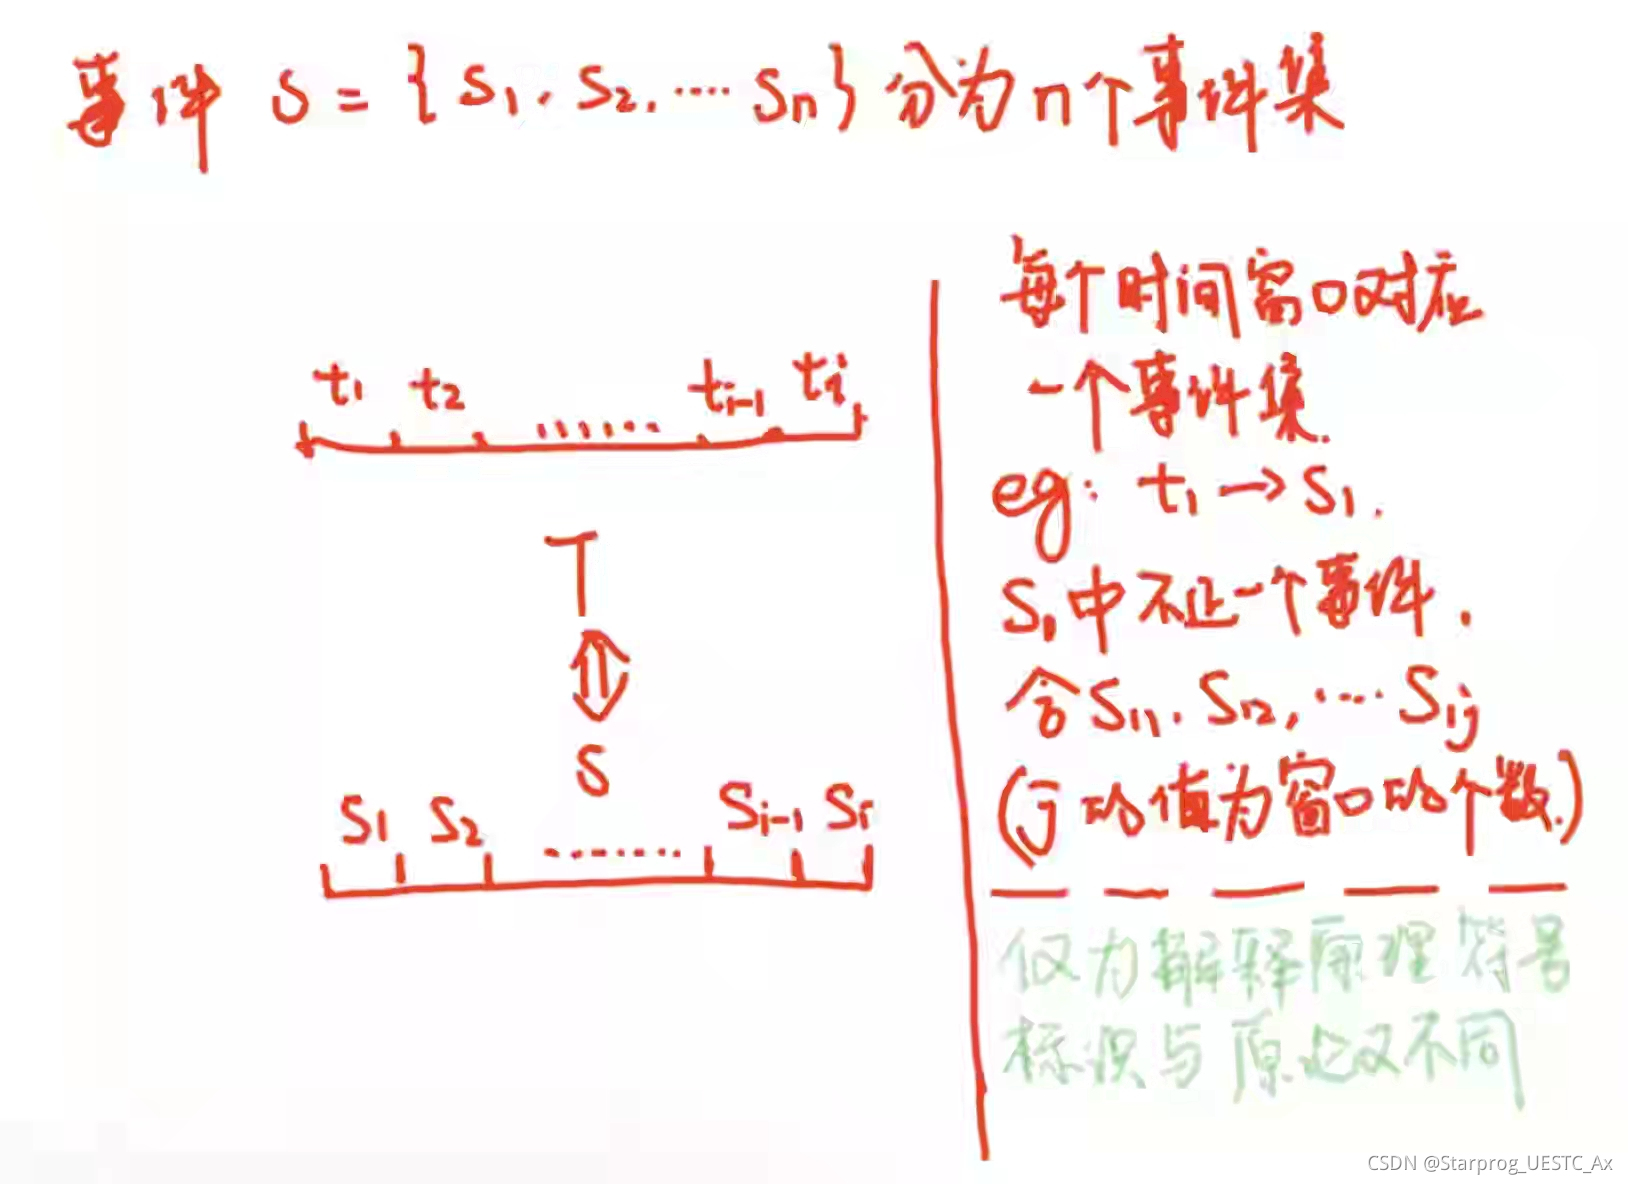 事件 S = { S1, S2, ···· Sn } 分为n个事件集
t1 t2 ······· ti-1 ti
T
S
S1 S2 ······· Si-1 Si
每个时间窗口对应
一个事件集.
eg: t1 → S1.
S1中不止一个事件.
含S11, S12, ···· S1j
(j的值为窗口的个数.)
仅为解释原理 符号
标识与原论文不同
CSDN @Starprog_UESTC_Ax